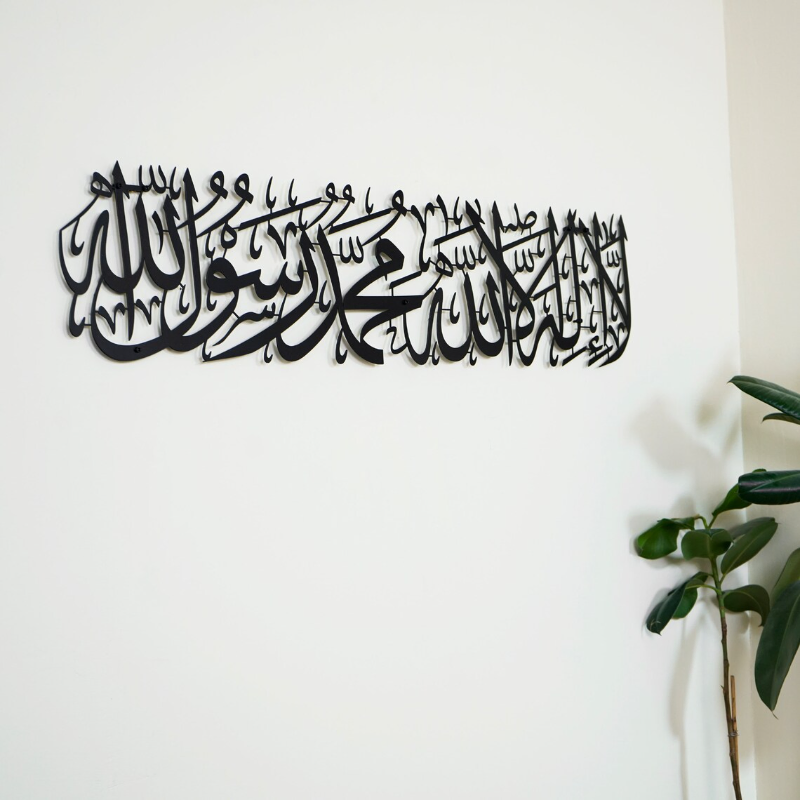 لَا إِلٰهَ إِلَّا اللّٰهُ مُحَمَّدٌ رَسُوْلُ اللّٰهِ